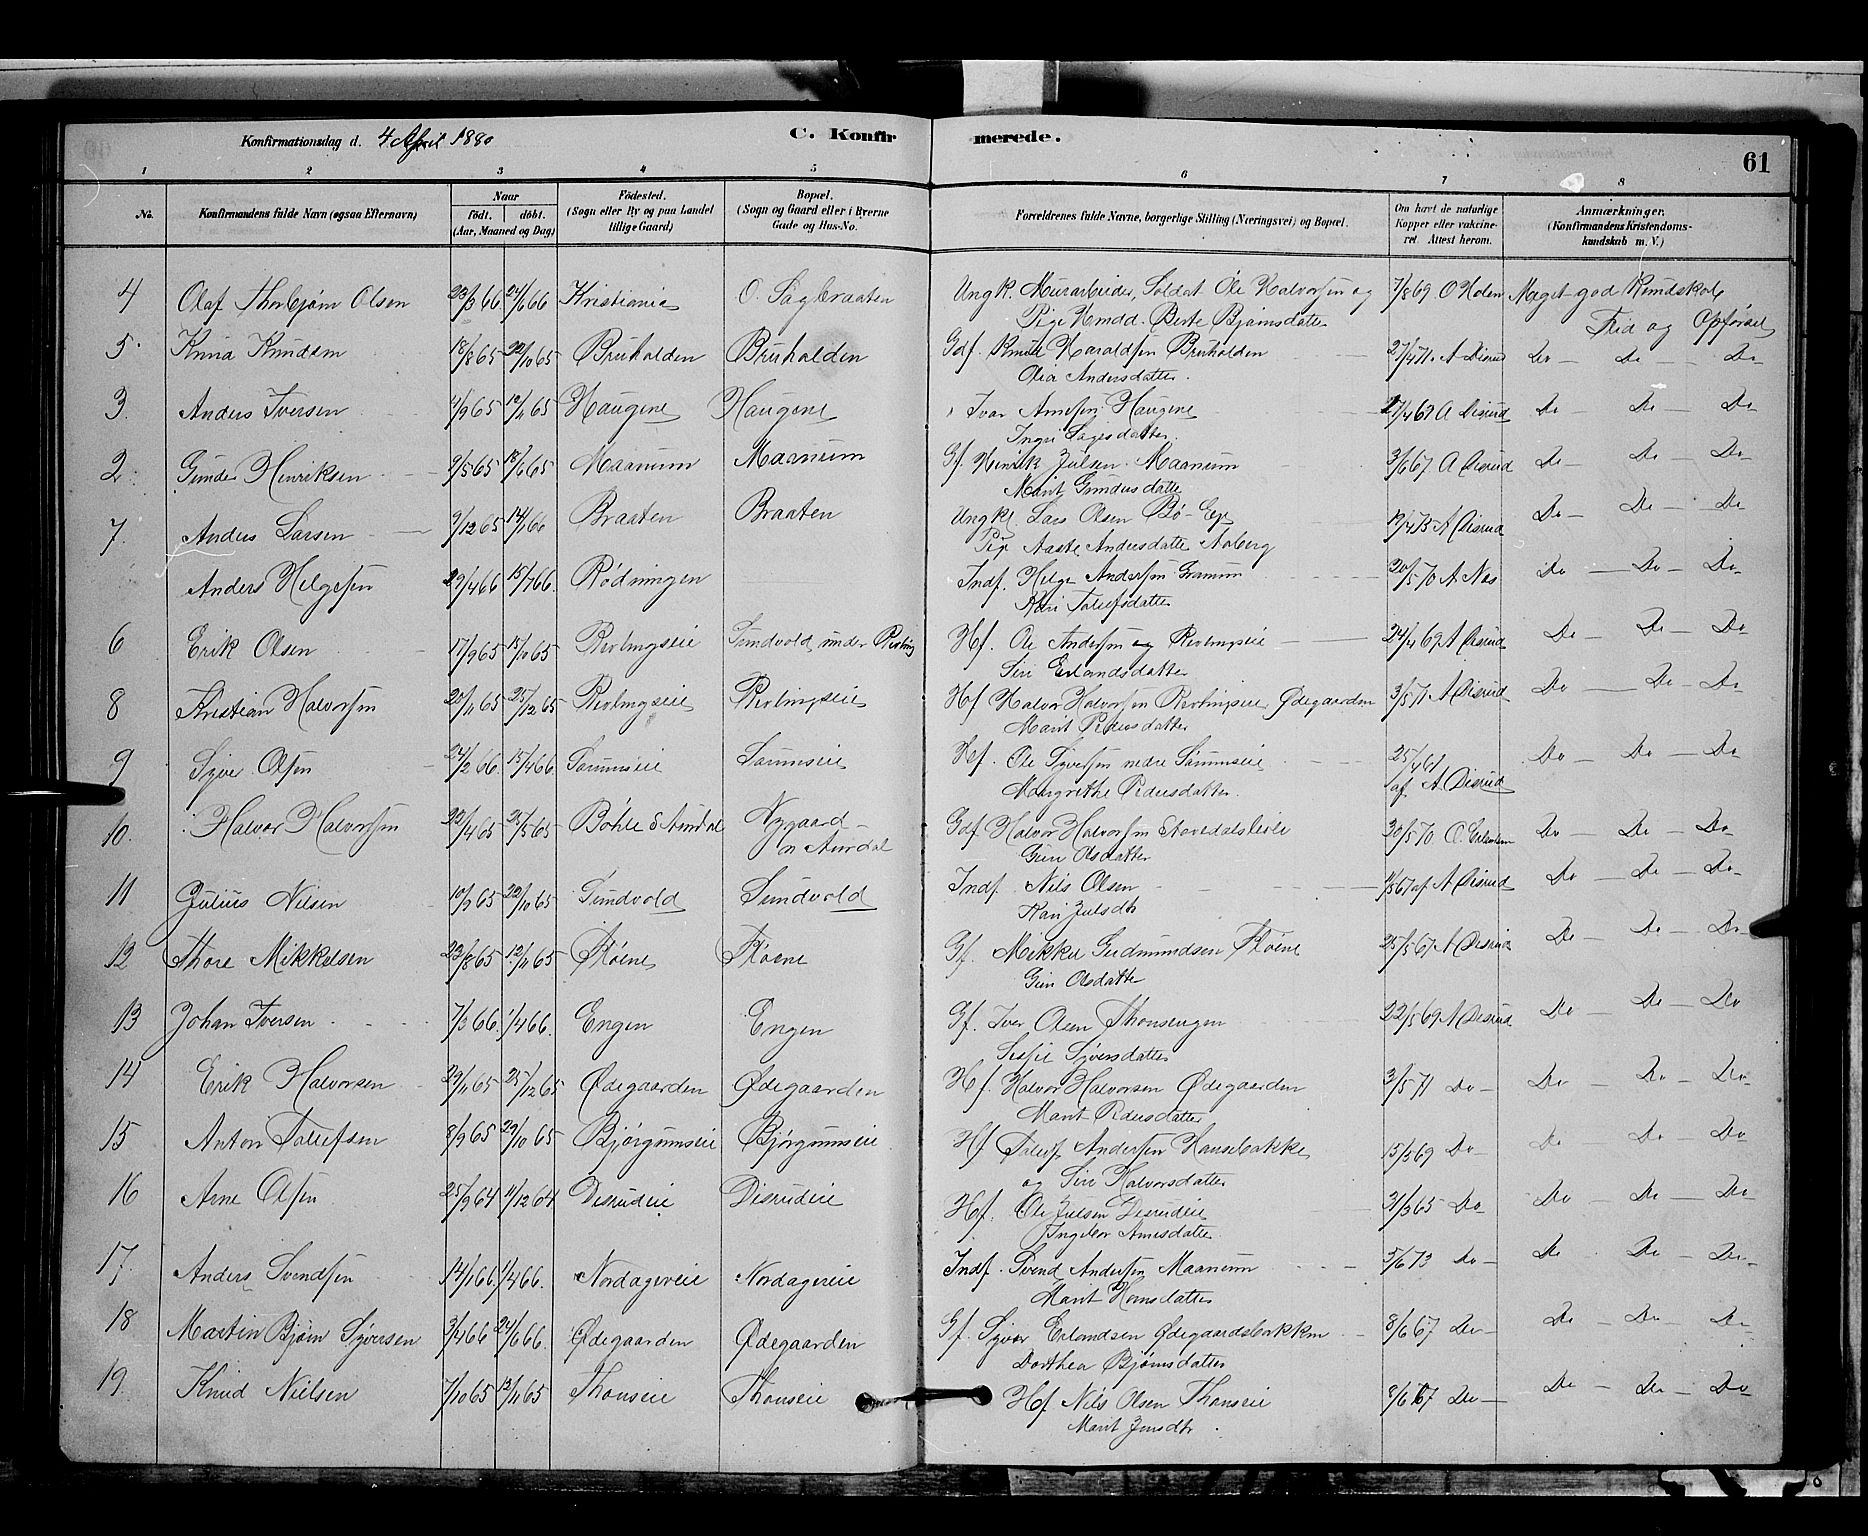 Konfirmationsdag d. 4 April 1880
C. Konfirmerede.
61
1 2 3 4 5 6 7 8
No.
Konfirmandens fulde Navn (ogsaa Efternavn)
Naar
født. døbt.
(Aar, Maaned og Dag)
Fødested.
(Sogn eller By og paa Landet
tillige Gaard)
Bopæl.
(Sogn og Gaard eller i Byerne
Gade og Hus-No.
Forældrenes fulde Navne, borgerlige Stilling (Næringsvei) og Bopæl.
Om havt de naturlige
Kopper eller vakcine-
ret Attest herom.
Anmærkninger.
(Konfirmandens Kristendoms-
kundskab m. V.)
4 Olaf Thorbjørn Olsen 23/3 66 24/6 66 Kristiania Ungk. Murarbeider, Soldat Ole Halvorsen og 7/8 69 O Holen Meget god Kundskab
Pige Berte Bjørnsdatter Flid og Opførsel
5 Knud Knudsen 18/8 65 22/10 65 Bruhalden Bruhalden Gdf. Knud Haraldsen Bruhalden 27/4 71 A Disrud Do — Do — Do
Olia Andersdatter.
3 Anders Iversen 4/9 65 12/11 65 Haugene Haugene Ivar Arnesen Haugene A Disrud Do — Do — Do
Ingri
2 Gunder Henriksen 9/5 65 18/6 65 Maanum Maanum Gf. Henrik Julsen Maanum 3/6 67 A Disrud Do — Do — Do
Marit Gundersdatter
7. Anders Larsen 9/12 65 14/1 66 Braaten Braaten Ungkl. Lars Olsen Bø-Eie 19/4 73 A Disrud Do — Do — Do
Pige Aaste Andersdatter Aaberg
Anders Helgesen 29/4 66 15/7 66. Rødningen Indf. Helge Andersen Granum 20/5 70 A. Næs Do — Do — Do
Kari Tollefsdatter
6 Erik Olsen 17/9 65 15/10 65 Rustingseie Sundvold under Hf. Ole Andersen og 24/4 69 A Disrud Do — Do — Do
Siri Erlandsdatter
8 Kristian Halvorsen 20/11 65 25/12 65 Hf Halvor Halvorsen Ødegaarden 3/5 71 A Disrud Do — Do — Do
Marit Pedersdatter
9 Syver Olsen 24/2 66 15/4 66 Sørumseie Sørumseie Hf. Ole Syversen nedre Sørumseie 25/4 67 Do — Do — Do
Margrethe Pedersdatter. af A Disrud
10. Halvor Halvorsen 23/4 65 25/5 65 Bøhle S Aurdal Nygaard Gdf. Halvor Halvorsen 30/5 70 Do — Do — Do
n Aurdal Guri Olsdatter
11 Julius Nilsen 10/9 65 22/10 65 Sundvold Sundvold Indf. Nils Olsen af A Disrud Do — Do — Do
Kari Julsdtr
12 Thore Mikkelsen 22/8 65 12/11 65 Støene Støene Gf. Mikkel Gudmundsen Støene 25/5 67 A Disrud Do — Do — Do
Guri Olsdatter
13 Johan Iversen 7/3 66. 1/4 66. Engen Engen Gf. Iver Olsen Thonsengen 22/5 69 A Disrud Do — Do — Do
Syversdatter
14 Erik Halvorsen 29/11 65 25/12 65 Ødegaarden Ødegaarden Hf. Halvor Halvorsen Ødegaarden 3/5 71 Do — Do — Do — Do
Marit Pedersdatter
15 Anton Tollefsen 8/9 65 29/10 65 Bjørgumseie Bjørgumseie Hf Tollef Andersen Hansebakke 15/5 69 Do — Do — Do — Do
og Siri Halvorsdatter
16 Arne Olsen 25/9 64 11/12 64 Disrudeie Disrudeie Hf. Ole Julsen Disrudeie 31/5 65 Do Do — Do — Do
Ingebor Arnesdatter
17. Anders Svendsen 14/1 66. 1/4 66. Nordagereie Nordagereie Indf. Svend Andersen Maanum 5/6 73 Do — Do. Do — Do
Marit Hansdatter
18 Martin Bjørn Syversen 3/4 66 24/6 66. Ødegaarden Ødegaarden Gf. Syver Erlandsen Ødegaardsbakken 8/6 67 Do — Do — Do — Do
Dorthea Bjørnsdatter
19. Knud Nielsen 7/10 65 12/11 65 Thonseie Thonseie Hf Nils Olsen Thonseie 8/6 67 Do — Do — Do — Do
Marit Jensdtr.